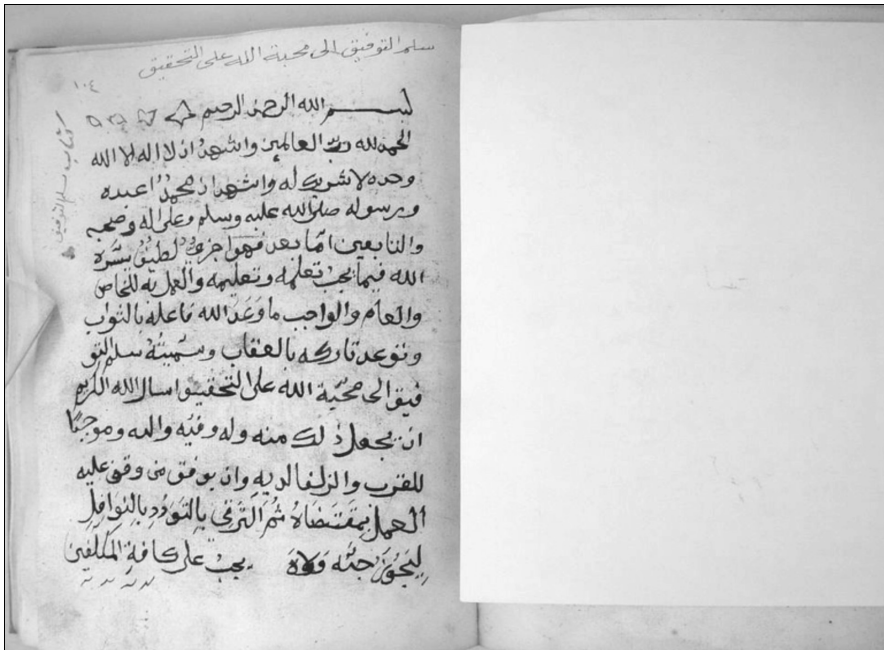 سلم التوفيق الى محبة الله على التحقيق
١٠٤
كتاب سلم التوفيق
بسم الله الرحمن الرحيم
الحمد لله رب العالمين واشهد ان لا اله الا الله
وحده لا شريك له واشهد ان محمدا عبده
ورسوله صلى الله عليه وسلم وعلى اله وصحبه
والتابعين امّا بعد فهوا جزءٌ لطيفٌ يسّره
الله فيما يجبُ تعلمه وتعليمه والعمل به للخاص
والعام والواجب ما وَعَدَ الله فاعله بالثواب
وتوعد تاركه بالعقاب وسمّيتُهُ سلم التو
فيق الى محبّة الله على التحقيق اسال الله الكريم
ان يجعل ذلك منه وله وفيه واليه وموجبًا
للقرب والزلفا لديهِ وان يوفق من وقف عليه
العمل بِمقتَضاهُ ثُم التَرقِي بِالتَوَدُدِ بِالنوافِلِ
لِيَحُوزَ حبّه وَولاهَ يجبُ على كافةِ المكلّفين